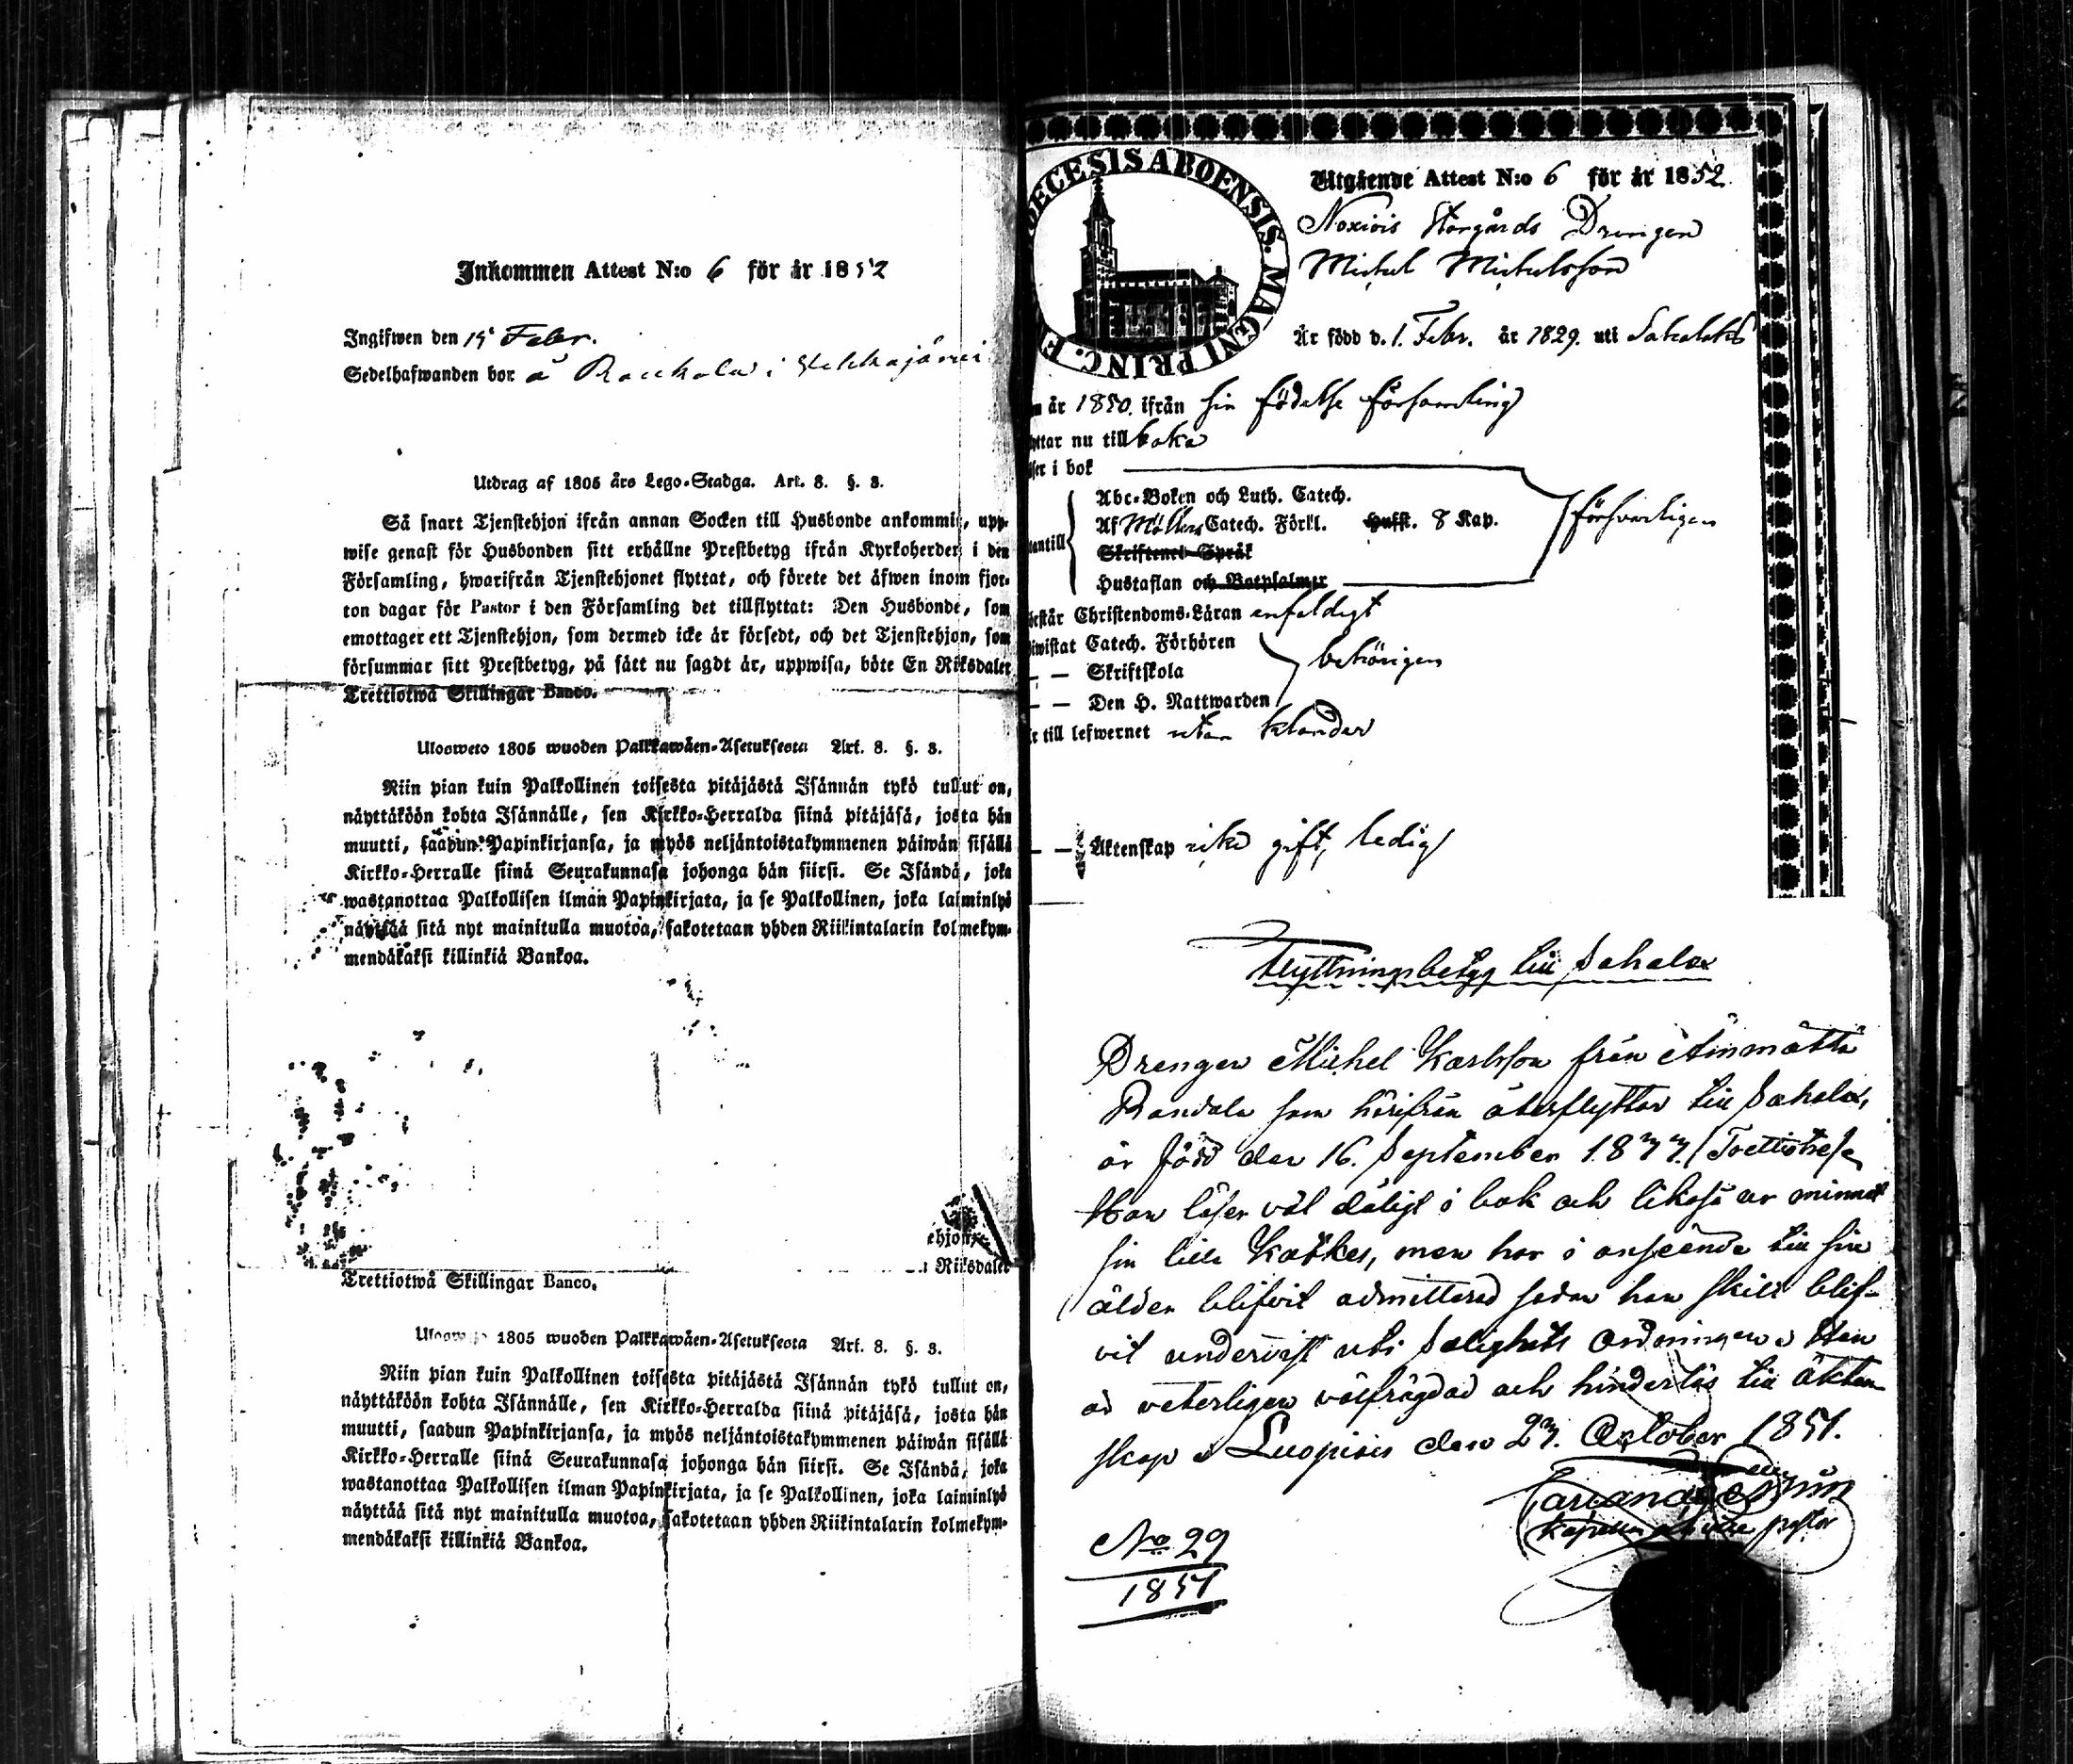 Inkommen Attest N:o 6 för år 1852
Ingifwen den 15 Febr.
Sedelhafwanden bor å Raukala i
Utdrag af 1805 års Lego-Stadga. Art. 8. §. 8.
Så snart Tjenstehjon ifrån annan Socken till Husbonde ankommit, upp-
wise genast för Husbonden sitt erhållne Prestbetyg ifrån Kyrkoherden i den
Församling, hwarifrån Tjenstehjonet flyttat, och förete det äfwen inom fjor-
ton dagar för Pastor i den Församling det tillflyttat: Den Husbonde, som
emottager ett Tjenstehjon, som dermed icke är försedt, och det Tjenstehjon, som
försummar sitt Prestbetyg, på sätt nu sagdt är, uppwisa, böte En Riksdaler
Trettiotwå Skillingar Banco.
Ulosweto 1805 wuoden Palkkawäen-Asetuksesta Art. 8. §. 8.
Niin pian kuin Palkollinen toisesta pitäjästä Isännän tykö tullut on,
näyttäköön kohta Isännälle, sen Kirkko-Herralda siinä pitäjäsä, josta hän
muutti, saadun Papinkirjansa, ja myös neljäntoistakymmenen päiwän sisällä
Kirkko-Herralle siinä Seurakunnasa johonga hän siirsi. Se Isändä, joka
wastanottaa Palkollisen ilman Papinkirjata, ja se Palkollinen, joka laiminlyö
näyttää sitä nyt mainitulla muotoa, sakotetaan yhden Riikintalarin kolmekym-
mendäkaksi killinkiä Bankoa.
ehjon,
Riksdaler
Trettiotwå Skillingar Banco.
1805 wuoden Palkkawäen-Asetuksesta Art. 8. §. 8.
Niin pian kuin Palkollinen toisesta pitäjästä Isännän tykö tullut on,
näyttäköön kohta Isännälle, sen Kirkko-Herralda siinä pitäjäsä, josta hän
muutti, saadun Papinkirjansa, ja myös neljäntoistakymmenen päiwän sisällä
Kirkko-Herralle siinä Seurakunnasa johonga hän siirsi. Se Isändä, joka
wastanottaa Palkollisen ilman Papinkirjata, ja se Palkollinen, joka laiminlyö
näyttää sitä nyt mainitulla muotoa, sakotetaan yhden Riikintalarin kolmekym-
mendäkaksi killinkiä Bankoa.
ECESIS ABOENSIS. MAGNI PRINC. F
Utgående Attest N:o 6 för år 1852
Storgårds Drengen
Michel Michelsson
Är född d. 1. Febr. år 1829. uti Sahalaks
år 1850. ifrån sin födelse församling
ttar nu till baka
ser i bok
Abc-Boken och Luth. Catech.
Af Möllers Catech. Förkl. Hufst. 8 Kap. försvarligen
antill
Skriftenes Språk
Hustaflan och Botpsalmer
står Christendoms-Läran enfaldigt
wistat Catech. Förhören
— — Skriftskola behörigen
— — Den H. Nattwarden
till lefwernet utan klander
— — Äktenskap icke gift, ledig
Flyttningsbetyg till Sahalax
Drengen Michel Karlsson från Ämmätsä
Randala som härifrån återflyttar till Sahalax,
är född den 16. September 1833. (Trettiotre)
Han läser väl dåligt i bok och likaså ur minnet
sin lilla Katkes, men har i anseende till sin
ålder blifvit admitterad sedan han skilt blif-
vit undervist uti Salighets Ordningen. Han
är veterligen välfrägdad och hinderlös till äkten-
skap. Luopiois den 23. October 1851.
Kapellan och vice pastor
No 29
1851